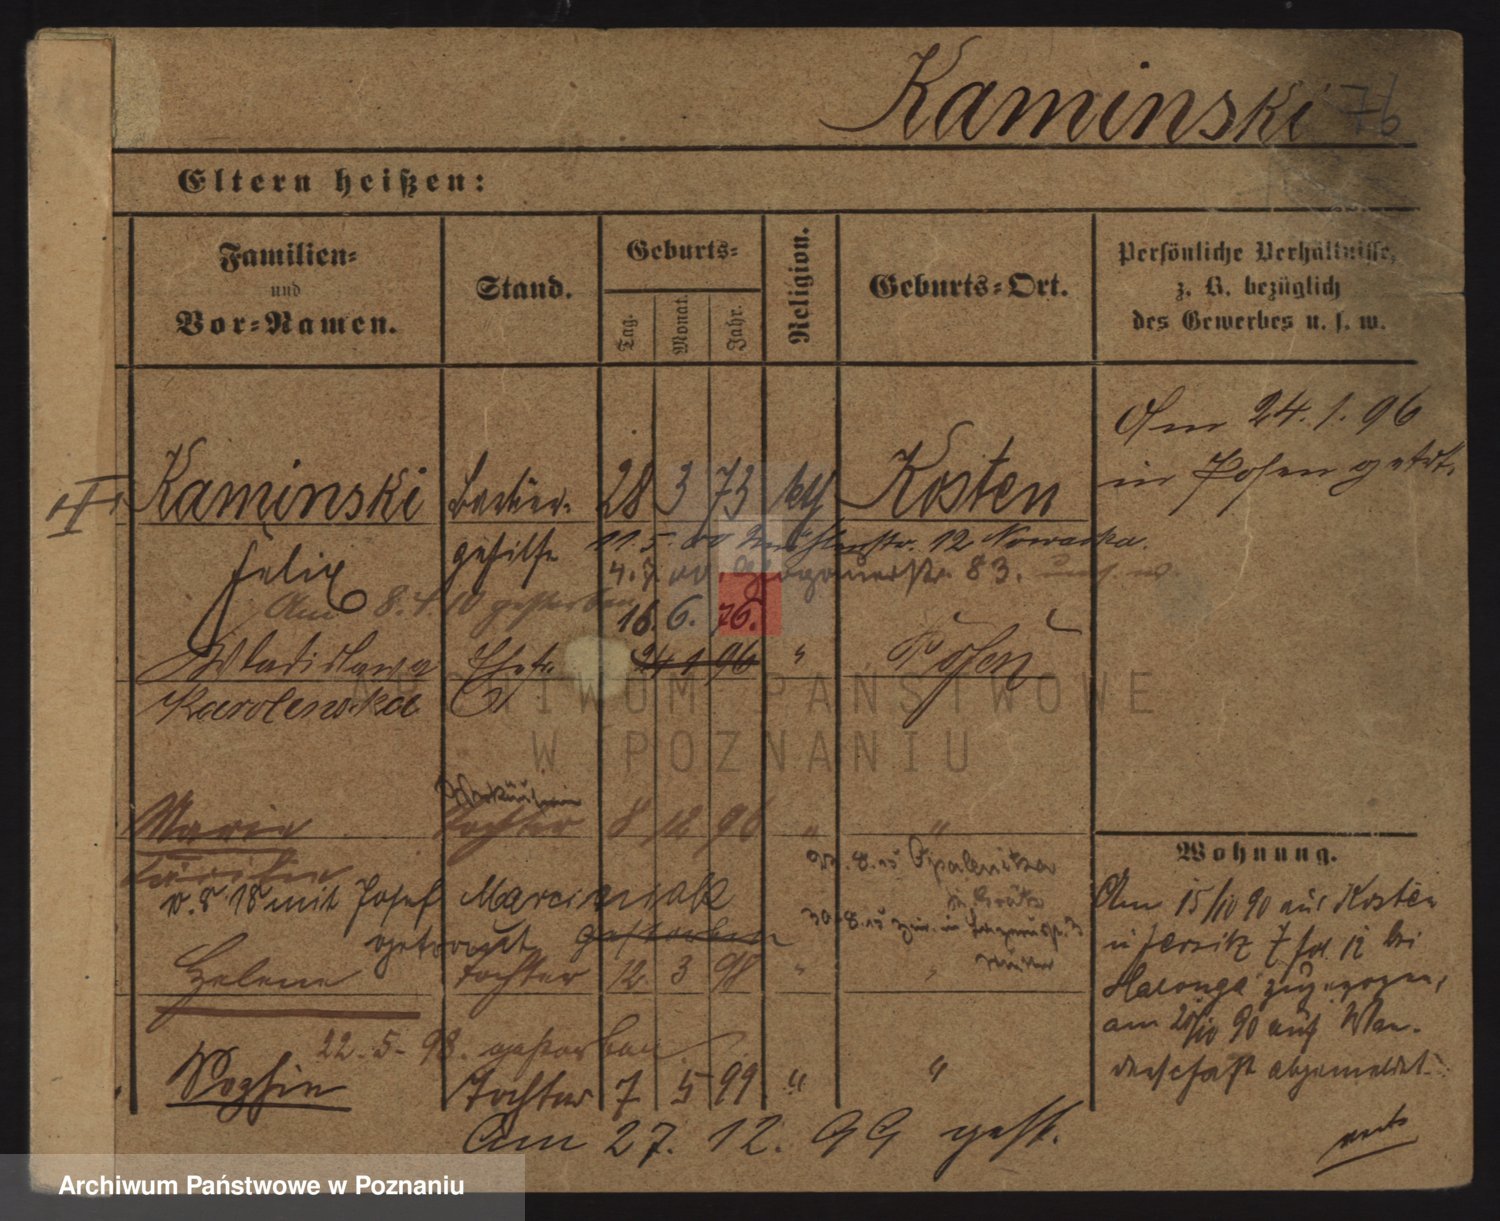 Kaminski 76
Eltern heißen:
Familien=
und
Vor=Namen.
Stand.
Geburts=
Tag.
Monat.
Jahr.
Religion.
Geburts=Ort.
Persönliche Verhältnisse,
z. B. bezüglich
des Gewerbes u. s. w.
Am 24. 1. 96
in Posen getr.
II
Kaminski Barbier- 28 3 73 Kosten
Felix gehilfe 11.5. 00 12 Nowacka.
4.7 00 Glogauerstr. 83.
Am 8. 4. 10 gestorben 16. 6. 76.
Wladislawa Ehefr. 24 1 96 " Posen
Karolewska
Marie Tochter 8 12 96 " "
8. 15 Opalenitza
v. 8 18 mit Josef Marciniak
30.8.15
getraut gestorben
Helene Tochter 12. 3 98 " "
22. 5. 98. gestorben
Sophie Tochter 7 5 99 " "
Am 27. 12. 99 gest.
Wohnung.
Am 15/10 90 aus Kosten
in Jersitz bei
zugezogen,
am 90 auf Wan-
derschaft abgemeldet.
ARCHIWUM PAŃSTWOWE
W POZNANIU
Archiwum Państwowe w Poznaniu